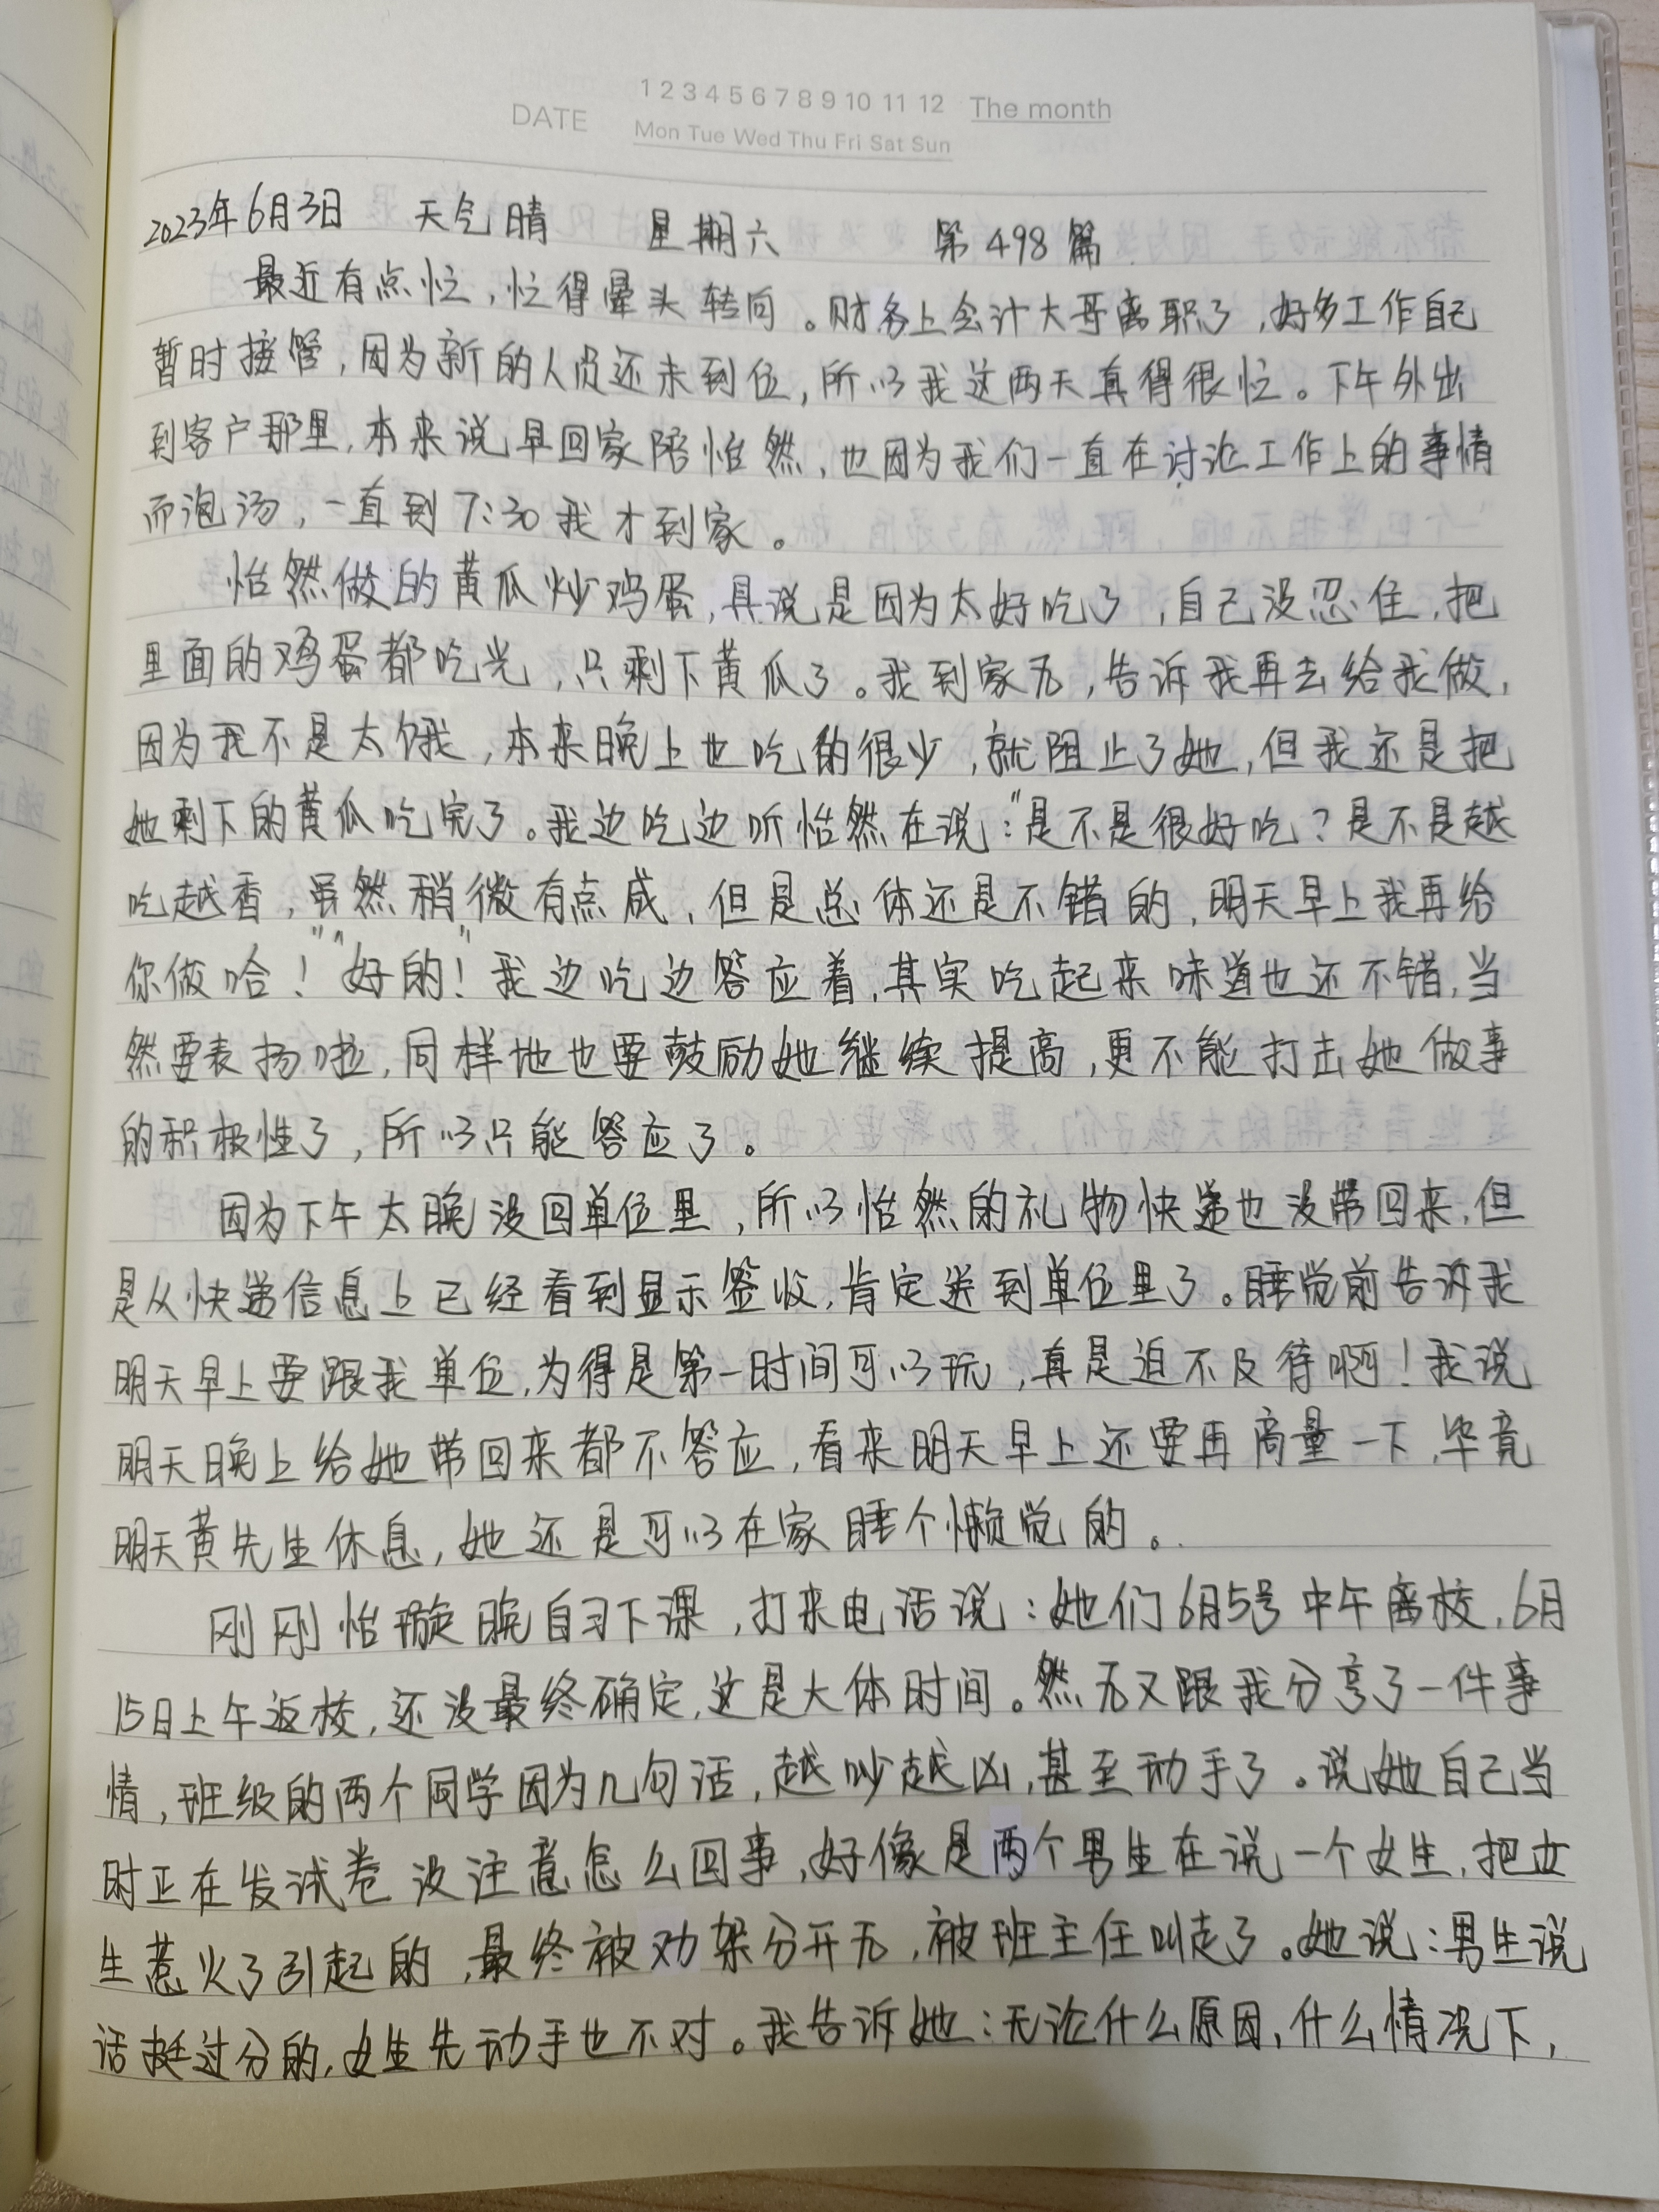 DATE 1 2 3 4 5 6 7 8 9 10 11 12 The month
Mon Tue Wed Thu Fri Sat Sun
2023年6月3日 天气晴 星期六 第498篇
最近有点忙，忙得晕头转向。财务上会计大哥离职了，好多工作自己
暂时接管，因为新的人员还未到位，所以我这两天真得很忙。下午外出
到客户那里，本来说早回家陪怡然，也因为我们一直在讨论工作上的事情
而泡汤，一直到7:30我才到家。
怡然做的黄瓜炒鸡蛋，具说是因为太好吃了，自己没忍住，把
里面的鸡蛋都吃光，只剩下黄瓜了。我到家后，告诉我再去给我做，
因为我不是太饿，本来晚上也吃的很少，就阻止了她，但我还是把
她剩下的黄瓜吃完了。我边吃边听怡然在说："是不是很好吃？是不是越
吃越香，虽然稍微有点咸，但是总体还是不错的，明天早上我再给
你做哈！""好的！"我边吃边答应着，其实吃起来味道也还不错，当
然要表扬啦，同样地也要鼓励她继续提高，更不能打击她做事
的积极性了，所以只能答应了。
因为下午太晚没回单位里，所以怡然的礼物快递也没带回来，但
是从快递信息上已经看到显示签收，肯定送到单位里了。睡觉前告诉我
明天早上要跟我单位，为得是第一时间可以玩，真是迫不及待啊！我说
明天晚上给她带回来都不答应，看来明天早上还要再商量一下，毕竟
明天黄先生休息，她还是可以在家睡个懒觉的。
刚刚怡璇晚自习下课，打来电话说：她们6月5号中午离校，6月
15日上午返校，还没最终确定，这是大体时间。然后又跟我分享了一件事
情，班级的两个同学因为几句话，越吵越凶，甚至动手了。说她自己当
时正在发试卷没注意怎么回事，好像是两个男生在说一个女生，把女
生惹火了引起的，最终被劝架分开后，被班主任叫走了。她说：男生说
话挺过分的，女生先动手也不对。我告诉她：无论什么原因，什么情况下，